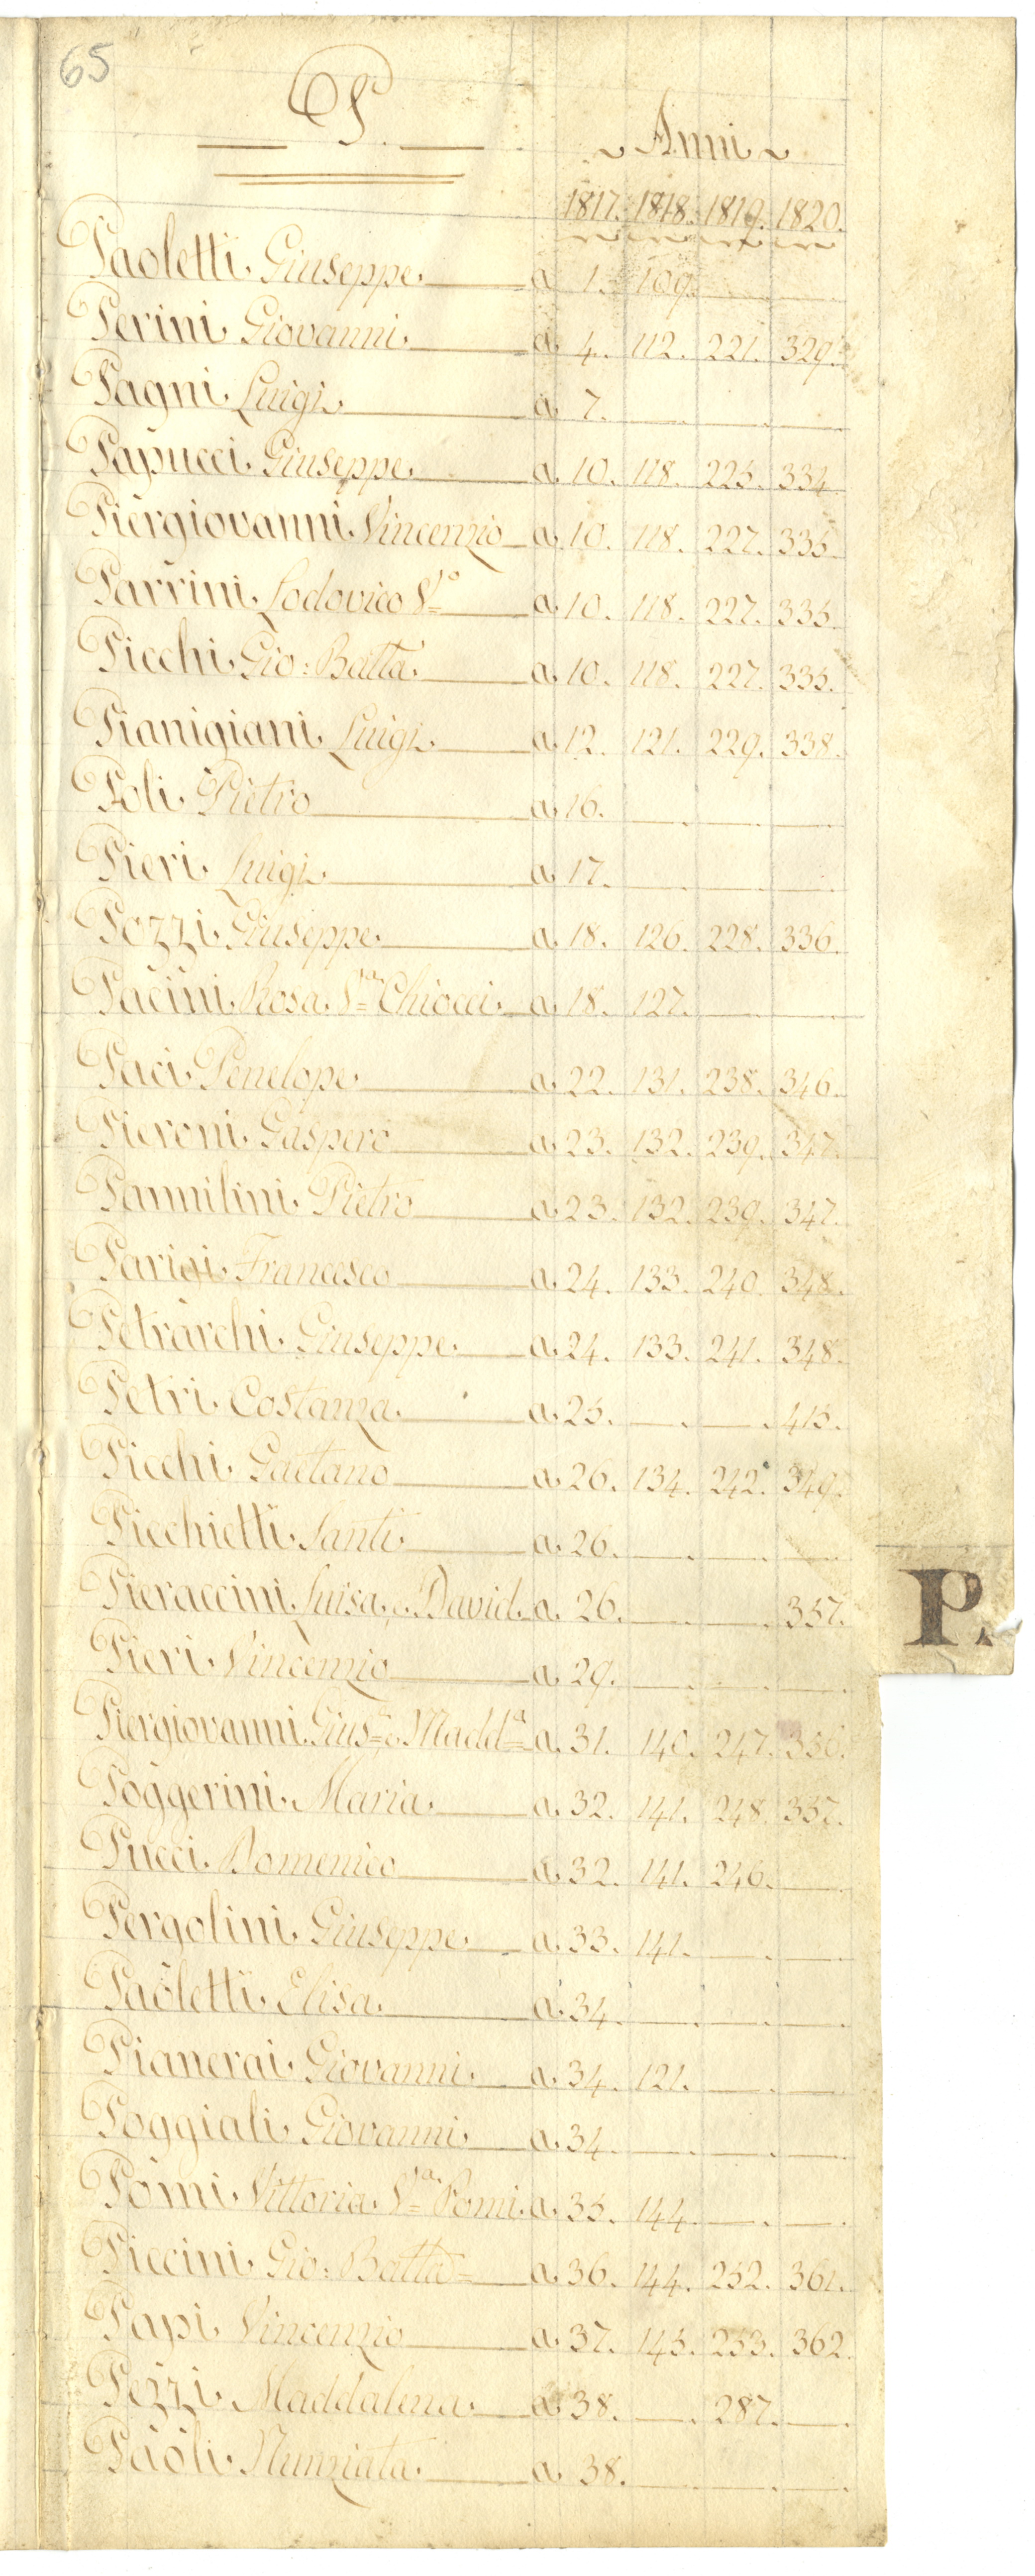 65
P.
Anni
1817. 1818. 1819. 1820.
Paoletti Giuseppe a 1. 109.
Perini Giovanni a 4. 112. 221. 329.
Pagni Luigi a 7.
Papucci Giuseppe a 10. 118. 225. 334.
Piergiovanni Vincenzio a 10. 118. 227. 335.
Parrini Lodovico a 10. 118. 227. 335.
Picchi Gio: Batta a 10. 118. 227. 335.
Pianigiani Luigi a 12. 121. 229. 338.
Poli Pietro a 16.
Pieri Luigi a 17.
Pozzi Giuseppe a 18. 126. 228. 336.
Pacini Rosa Chiocci a 18. 127.
Paci Penelope a 22. 131. 238. 346.
Pieroni Gaspero a 23. 132. 239. 347.
Pannilini Pietro a 23. 132. 239. 347.
Parigi Francesco a 24. 133. 240. 348.
Petrarchi Giuseppe a 24. 133. 241. 348.
Petri Costanza a 25. 415.
Picchi Gaetano a 26. 134. 242. 349.
Picchietti Santi a 26.
P.
Pieraccini Luisa e David a 26. 357.
Pieri Vincenzio a 29.
Piergiovanni Gius.e e Madd.a a 31. 140. 247. 356.
Poggerini Maria a 32. 141. 248. 357.
Pucci Domenico a 32. 141. 246.
Pergolini Giuseppe a 33. 141.
Paoletti Elisa a 34.
Pianerai Giovanni a 34. 121.
Poggiali Giovanni a 34.
Pomi Vittoria Pomi a 35. 144.
Piccini Gio: Batta a 36. 144. 252. 361.
Papi Vincenzio a 37. 145. 253. 362.
Pezzi Maddalena a 38. 287.
Paoli Nunziata a 38.